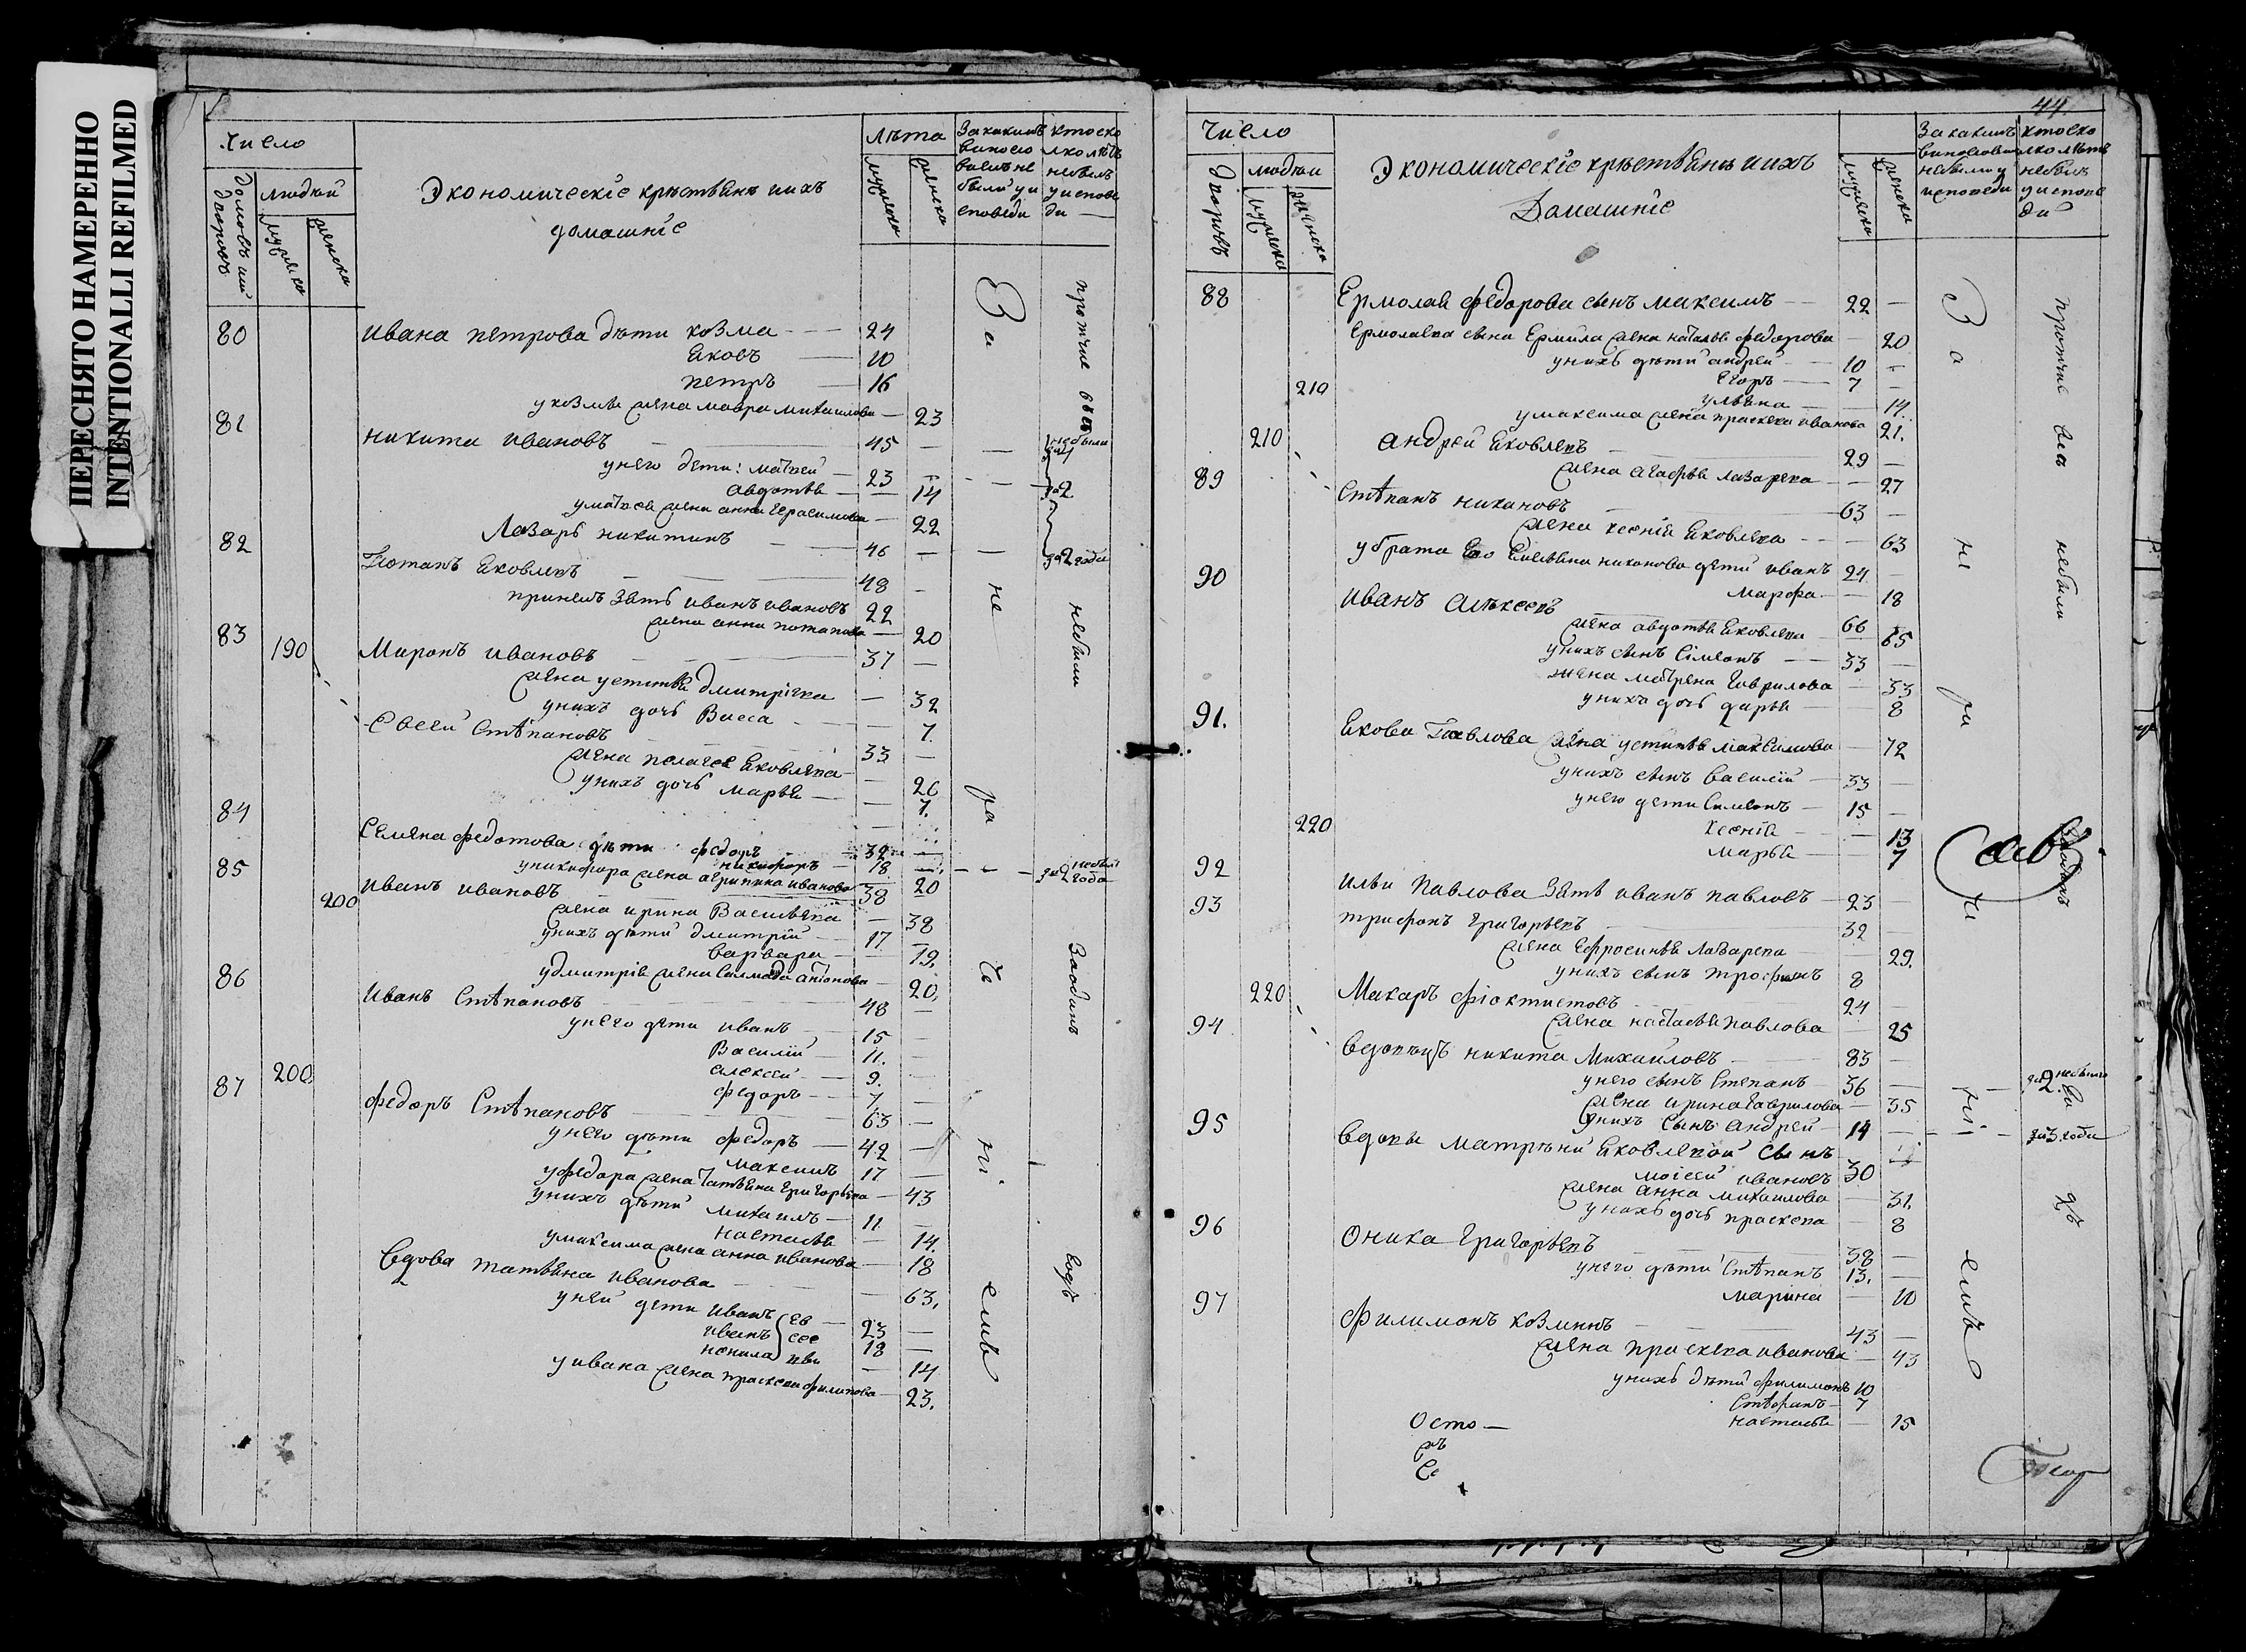 ПЕРЕСНЯТО НАМЕРЕННО
INTENTIONALLI REFILMED
Число
домовъ или дворовъ
людей
мужеска
женска
Экономическіе крѣстьянѣ и ихъ
домашніе
лѣта
мужеска
женска
За какимъ
виносло
виемъ не
были у и
споведи
кто ско
лко лѣтъ
небылъ
у испове
ди
80 Ивана петрова дѣти козма 24
Яковъ 20
петръ 16
у козмы жена мавра михаилова 23
81 никита ивановъ 45 — небыли
у него дети: матвеи 23
авдотья 14 за 2
у матвея жена анна Герасимова 22
Лазарь никитинъ 46 — за 2 года
82 Потапъ Яковлевъ 48
при немъ зять иванъ ивановъ 22
жена анна потапова 20
83 190 Миронъ ивановъ 37
жена устинья дмитріева 32
у нихъ дочь Васса 7
Евсеи Стѣпановъ 33
жена пелагея Яковлева 26
у нихъ дочь марья 7.
84 Семена федотова дѣти федоръ 32
никифоръ 18
у никифора жена агрипина иванова 20 за 2 года
85 200 Иванъ ивановъ 38
жена ирина Васильева 38
у нихъ дѣти дмитрій 17
варвара 19.
у дмитрія жена антонова 20.
86 Иванъ Стѣпановъ 48
у него дѣти иванъ 15
Василій 11.
алексеи 9.
федоръ 7
87 200 федоръ Стѣпановъ 63
у него дѣти федоръ 42
максимъ 17
у федора жена Татьяна григорьева 43
у нихъ дѣти михаилъ 11
настасья 14.
у максима жена анна иванова 18
вдова татьяна иванова 63.
у неи дети иванъ 23
иванъ 18
ненила 14
у ивана жена прасковья филипова 23.
За не ра че ни емъ
протчие все небыли Заодинъ Годъ
44.
Число
дворовъ
людеи
мужеска
женска
Экономическіе крѣстьянѣ и ихъ
Домашніе
мужеска
женска
За какимъ
виносло
небыли у
исповеди
кто ско
лко лѣтъ
небылъ
у испове
ди
88 Ермолая федорова сынъ максимъ 22
Ермолаева сына Ермила жена наталья федорова 20
у нихъ дѣти андреи 10
210 Егоръ 7
ульяна 14.
у максима жена прасковья иванова 21.
210 андреи Яковлевъ 29
жена агафья лазарева 27
89 Стѣпанъ никоновъ 63
жена ксенія Яковлева 63
у брата Его Емельяна никонова дети иванъ 24
марфа 18
90 Иванъ алѣксеевъ 66
жена авдотья Яковлева 65
у нихъ сынъ Сімеонъ 33
жена матрена Гаврилова 33
у нихъ дочь дарья 8
91. Якова Павлова жена устинья максимова 72
у нихъ сынъ василіи 33
у него дети Симеонъ 15
220 ксенія 13
марья 7
92 Ильи Павлова зять иванъ павловъ 23
93 трифонъ григорьевъ 32
жена Ефросинья лазарева 29.
у нихъ сынъ трофимъ 8
220 Макаръ фіоктистовъ 24
жена настасья павлова 25
94 вдовецъ никита Михаиловъ 83
у него сынъ Степанъ 36 — за 2
жена ирина гаврилова 35
у нихъ сынъ андреи 14 — за 3 года
95 вдовы матрѣны Яковлевои сынъ
моісеи ивановъ 30
жена анна михаилова 31.
у нихъ дочь прасковья 8
96 Оника григорьевъ 38
у него дѣти Стѣпанъ 13.
марина 10
97 Филимонъ козминъ 43
жена прасковья иванова 43
у нихъ дѣти филимонъ 10
Стѣфанъ 7
настасья 15
За не ра че ни емъ
протчие все небыли Заодинъ годъ